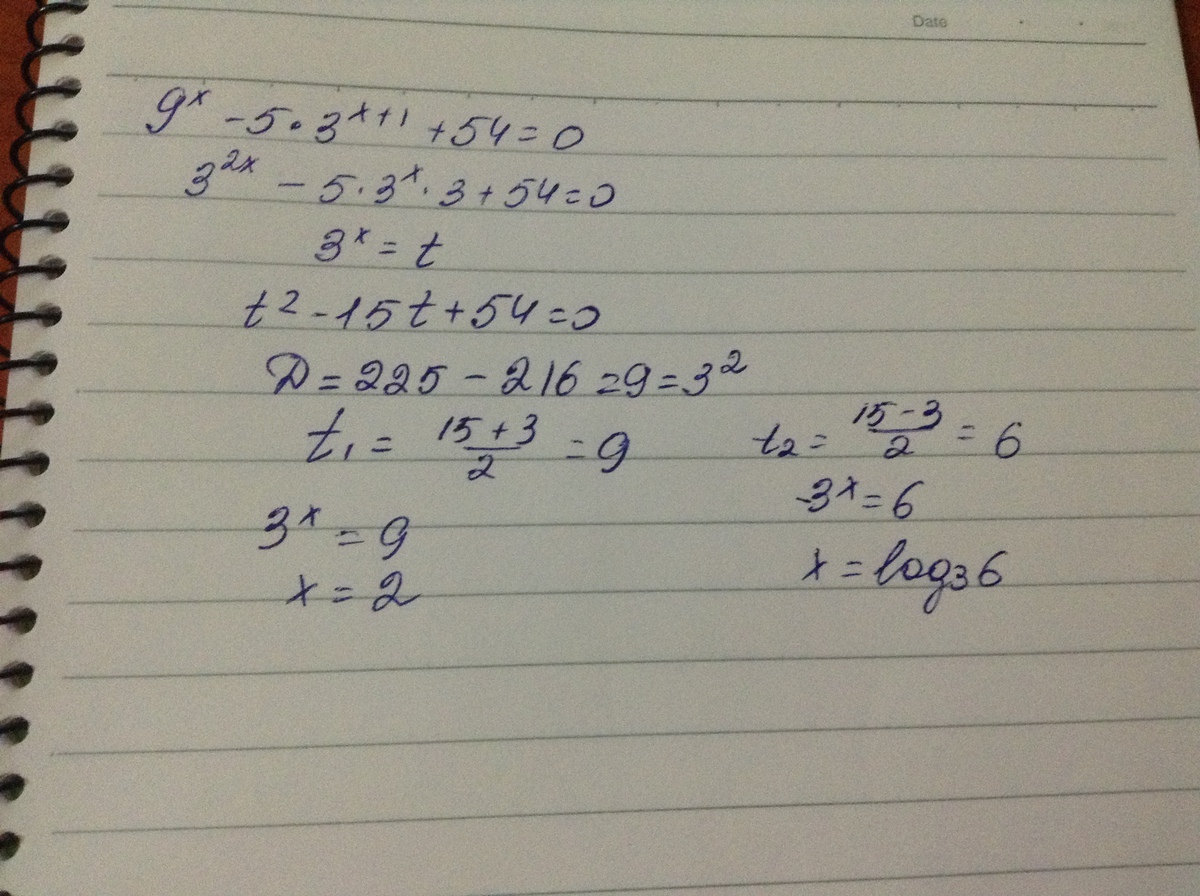 Date
9^x - 5 · 3^{x+1} + 54 = 0
3^{2x} - 5 · 3^x · 3 + 54 = 0
3^x = t
t² - 15t + 54 = 0
D = 225 - 216 = 9 = 3²
t₁ = (15 + 3)/2 = 9    t₂ = (15 - 3)/2 = 6
3^x = 9    3^x = 6
x = 2    x = log₃6